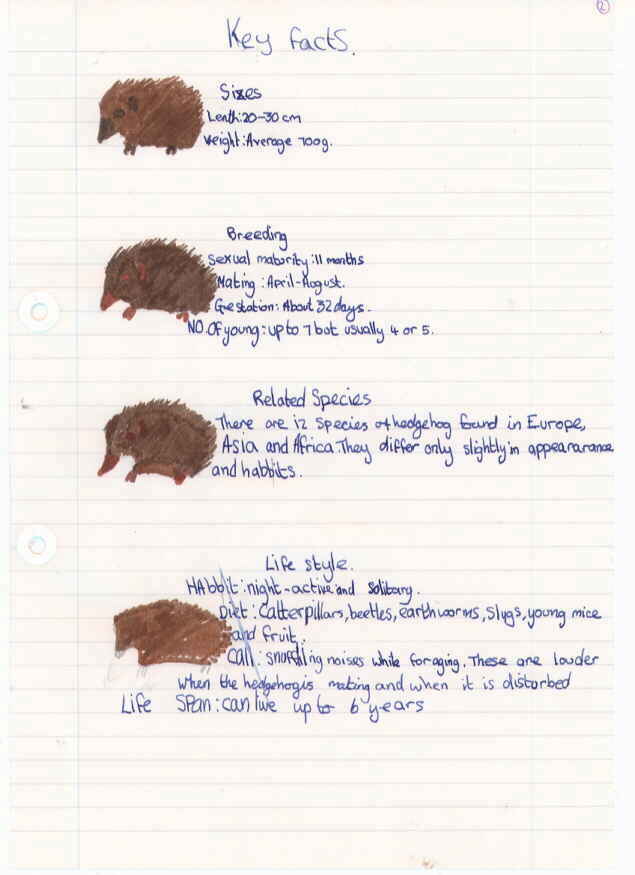 2
Key facts.
Sizes
Lenth:20-30 cm
weight:Average 700g.
Breeding
Sexual maturity:11 months
Mating:April-August.
Gestation: About 32 days.
NO.Of young:up to 7 but usually 4 or 5.
Related Species
There are 12 Species of hedgehog found in Europe,
Asia and Africa.They differ only slightly in appeararance
and habbits.
Life style.
HAbbit:night-active and Solitary.
Diet:Catterpillars,beetles,earthworms,slugs,young mice
and fruit.
Call:snuffling noises while foraging.These are louder
when the hedgehog is mating and when it is disturbed
Life Span:can live up to 6 years